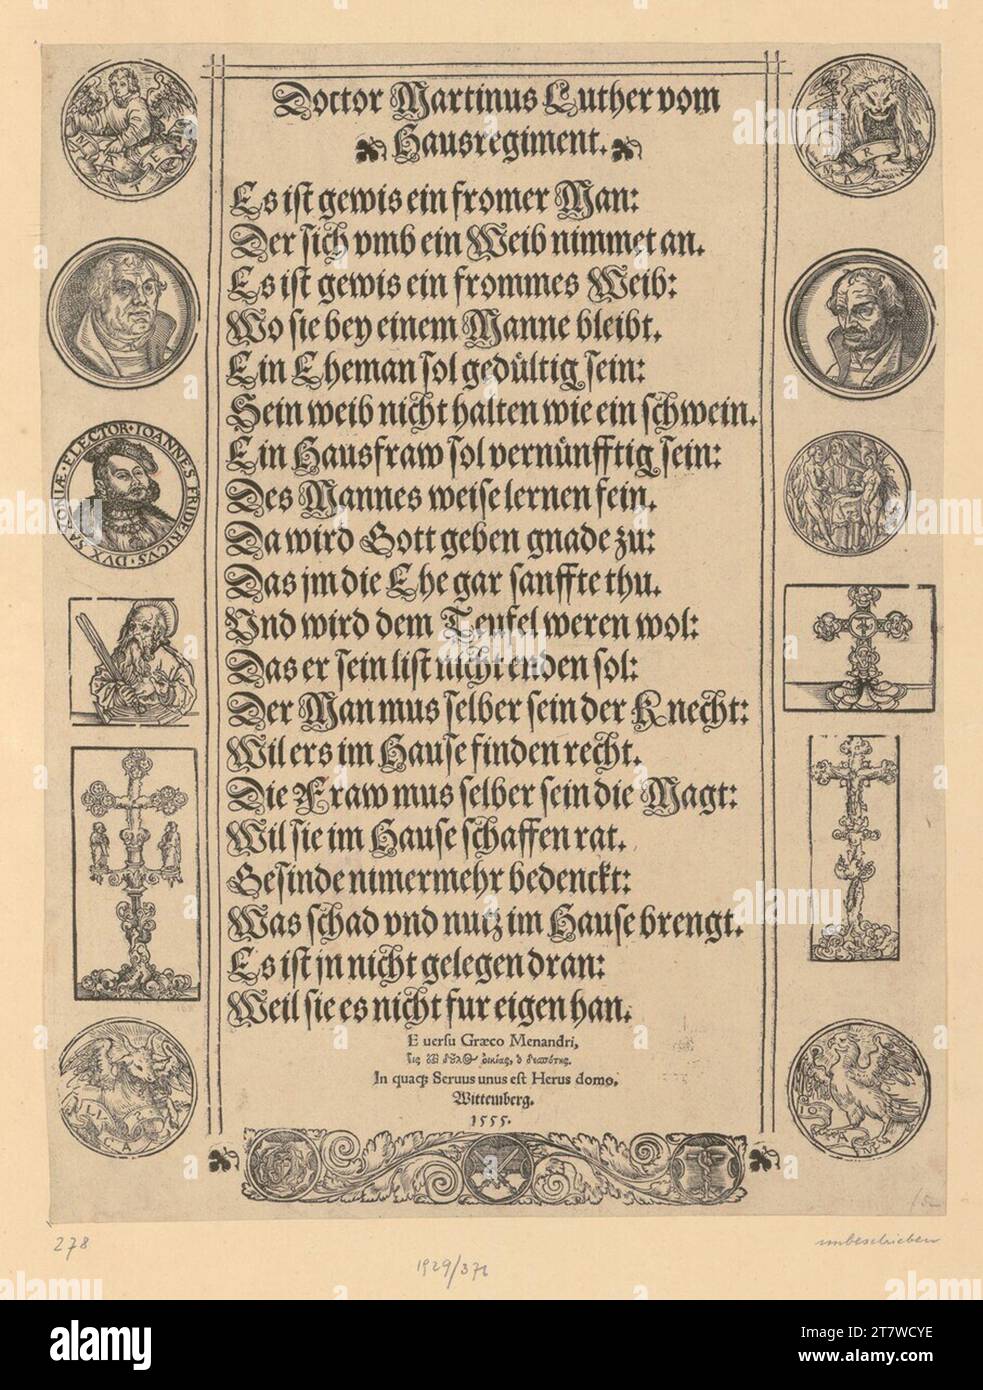 Doctor Martinus Luther vom
Hausregiment.
Es ist gewis ein fromer Man:
Der sich vmb ein Weib nimmet an.
Es ist gewis ein frommes Weib:
Wo sie bey einem Manne bleibt.
Ein Eheman sol gedültig sein:
Sein weib nicht halten wie ein schwein.
Ein Hausfraw sol vernünfftig sein:
Des Mannes weise lernen fein.
Da wird Gott geben gnade zu:
Das jm die Ehe gar sanffte thu.
Vnd wird dem Teufel weren wol:
Das er sein list nicht enden sol:
Der Man mus selber sein der Knecht:
Wil ers im Hause finden recht.
Die Fraw mus selber sein die Magt:
Wil sie im Hause schaffen rat.
Gesinde nimermehr bedenckt:
Was schad vnd nutz im Hause brengt.
Es ist jn nicht gelegen dran:
Weil sie es nicht fur eigen han.
E uersu Græco Menandri,
In quaq; Seruus unus est Herus domo,
Wittemberg.
1555.
IOANNES FRIDERICVS DVX SAXONIÆ ELECTOR
278
1929/376
unbeschrieben
alamy
Image ID: 2T7WCYE
www.alamy.com